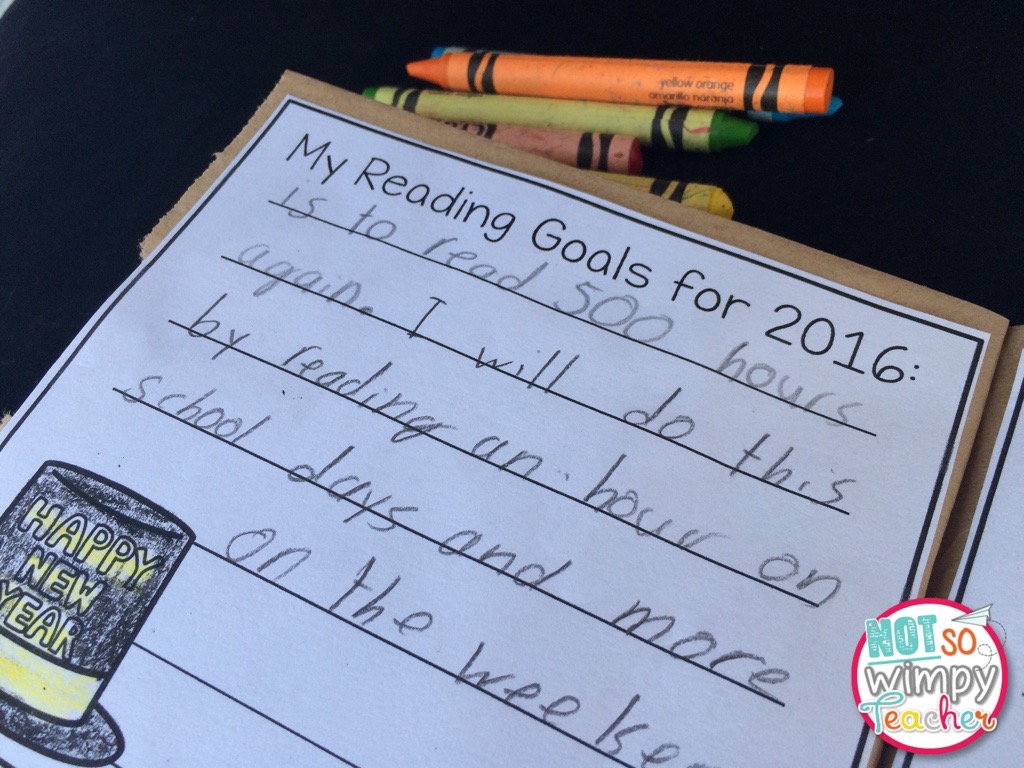 yellow orange
amarillo naranja
My Reading Goals for 2016:
is to read 500 hours
again. I will do this
by reading an hour on
school days and more
on the
HAPPY
NEW
YEAR
NOT SO
wimpy
Teacher